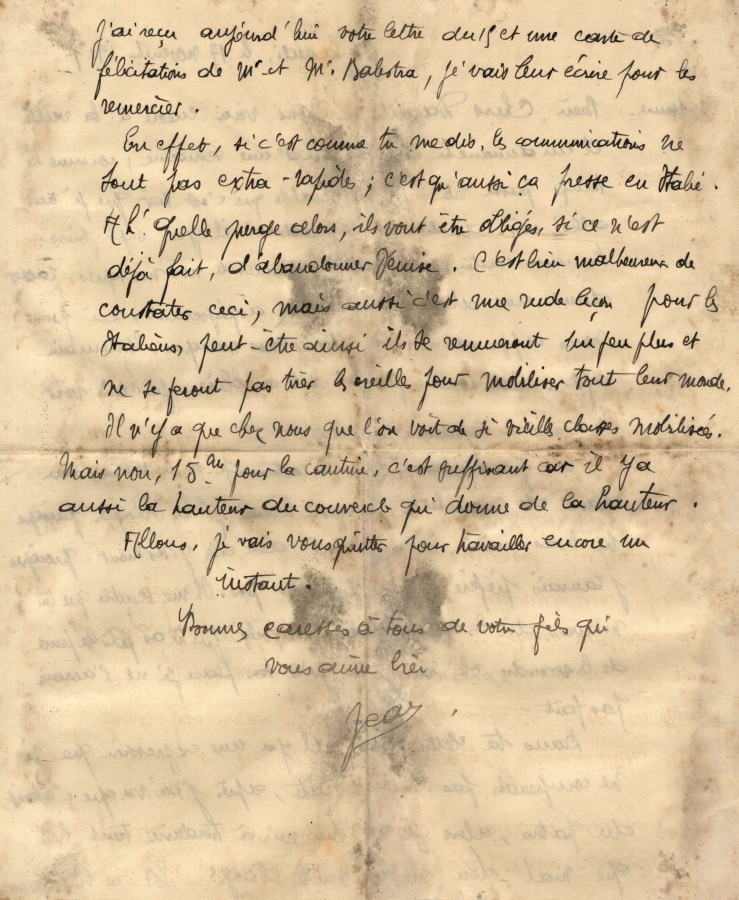 J'ai reçu aujourd'hui votre lettre du 15 et une carte de
félicitations de Mr et Me Balestra, je vais leur écrire pour les
remercier.
En effet, si c'est comme tu me dis, les communications ne
sont pas extra-rapides ; c'est qu'aussi ça presse en Italie.
Ah! Quelle purge alors, ils vont être obligés, si ce n'est
déjà fait, d'abandonner Venise. C'est bien malheureux de
constater ceci, mais aussi c'est une rude leçon pour les
Italiens, peut-être ainsi ils se remueront un peu plus et
ne se feront pas tirer les oreilles pour mobiliser tout leur monde.
Il n'y a que chez nous que l'on voit de si vieille classes mobilisées.
Mais non, 15 cm pour la cantine, c'est suffisant car il y a
aussi la hauteur du couvercle qui donne de la hauteur.
Allons, je vais vous quitter pour travailler encore un
instant.
Bonnes caresses à tous de votre fils qui
vous aime bien
Jean